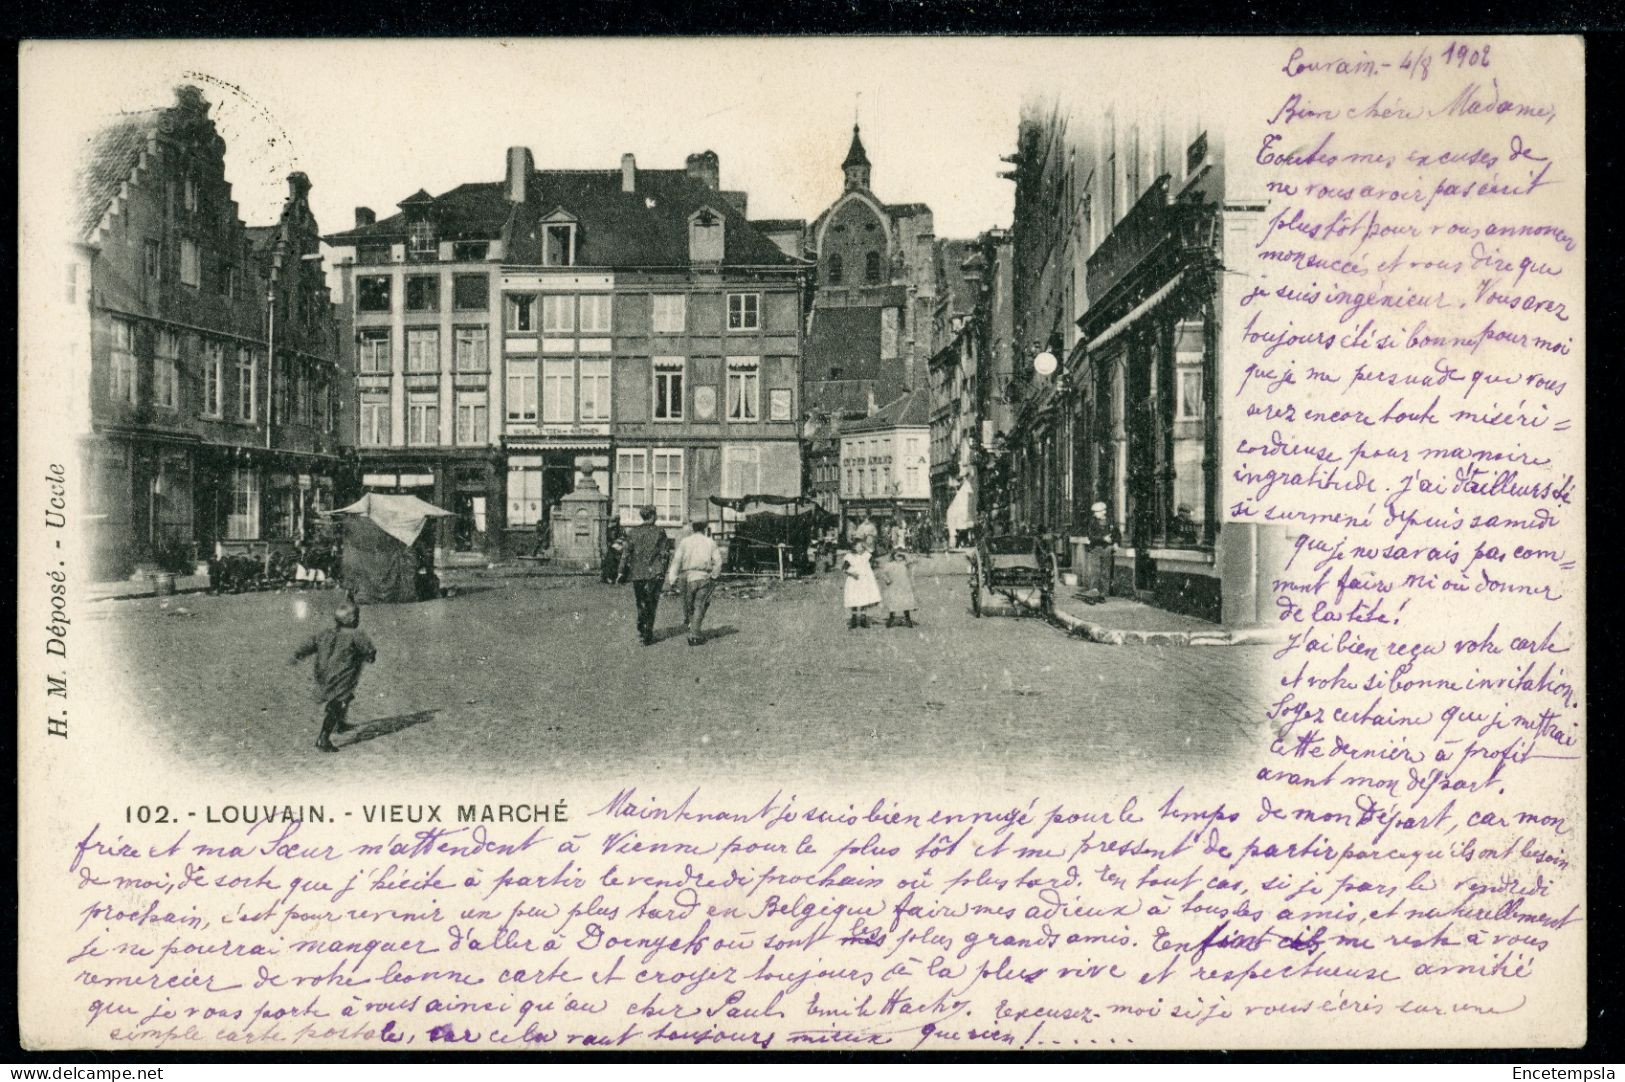 Louvain.- 4/8 1902
Bien chére Madame,
Toutes mes excuses de
ne vous avoir pas écrit
plus tôt pour vous annoncer
mon succès et vous dire que
je suis ingénieur. Vous avez
toujours été si bonne pour moi
que je me persuade que vous
serez encore toute miséri=
cordieuse pour ma noire
ingratitude. J'ai d'ailleurs été
si surmené depuis samedi
que je ne savais pas com=
ment faire ni où donner
de la tête!
J'ai bien reçu votre carte
et votre si bonne invitation.
Soyez certaine que je mettrai
cette dernière à profit
avant mon départ.
H. M. Déposé. - Uccle
102. - LOUVAIN. - VIEUX MARCHÉ
Maintenant je suis bien ennuyé pour le temps de mon Départ, car mon
frère et ma Sœur m'attendent à Vienne pour le plus tôt et me pressent de partir parcequ'ils ont besoin
de moi, de sorte que j'hésite à partir le vendredi prochain où plus tard. En tout cas, si je pars le vendredi
prochain, c'est pour revenir un peu plus tard en Belgique faire mes adieux à tous les amis, et naturellement
je ne pourrai manquer d'aller à où sont les plus grands amis. Enfin il me reste à vous
remercier de votre bonne carte et croyez toujours à la plus vive et respectueuse amitié
que je vous porte à vous ainsi qu'au cher Paul. Emile. Excusez-moi si je vous écris sur une
simple carte postale, car cela vaut toujours mieux que rien!......
Encetempsla
delcampe.net